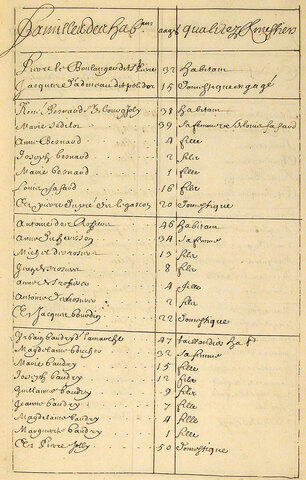 Familles des habans aages qualitez & mestiers
Pierre le Boulanger dit St Pierre 37 habitant
Jacquere Padineau dit polidor 15 Domestique engagé
René Besnard dit bourgjoly 38 habitant
Marie Sedelor 39 sa femme Vve Louis Lafard
Anne Besnard 4 fille
Joseph Besnard 2 filz
Marie Besnard 1 fille
Louis Lafard 16 filz
Et pierre Dupré dit le gascon 20 Domestique
Antoine des Rosiers 46 habitant
Anne Du herisson 34 sa femme
Michel desrosiers 13 filz
Jean desrosiers 8 filz
Anne desrosiers 4 fille
Antoine desrosiers 2 filz
Et Jacques bourdin 22 Domestique
Urbain baudry dit lamarche 47 taillandier hat
Magdelaine boucher 32 sa femme
Marie baudry 15 fille
Joseph baudry 12 filz
Guillaume baudry 9 filz
Jeanne baudry 7 fille
Magdelaine baudry 4 fille
Marguerite baudry 1 fille
Et Pierre Jolly 50 Domestique